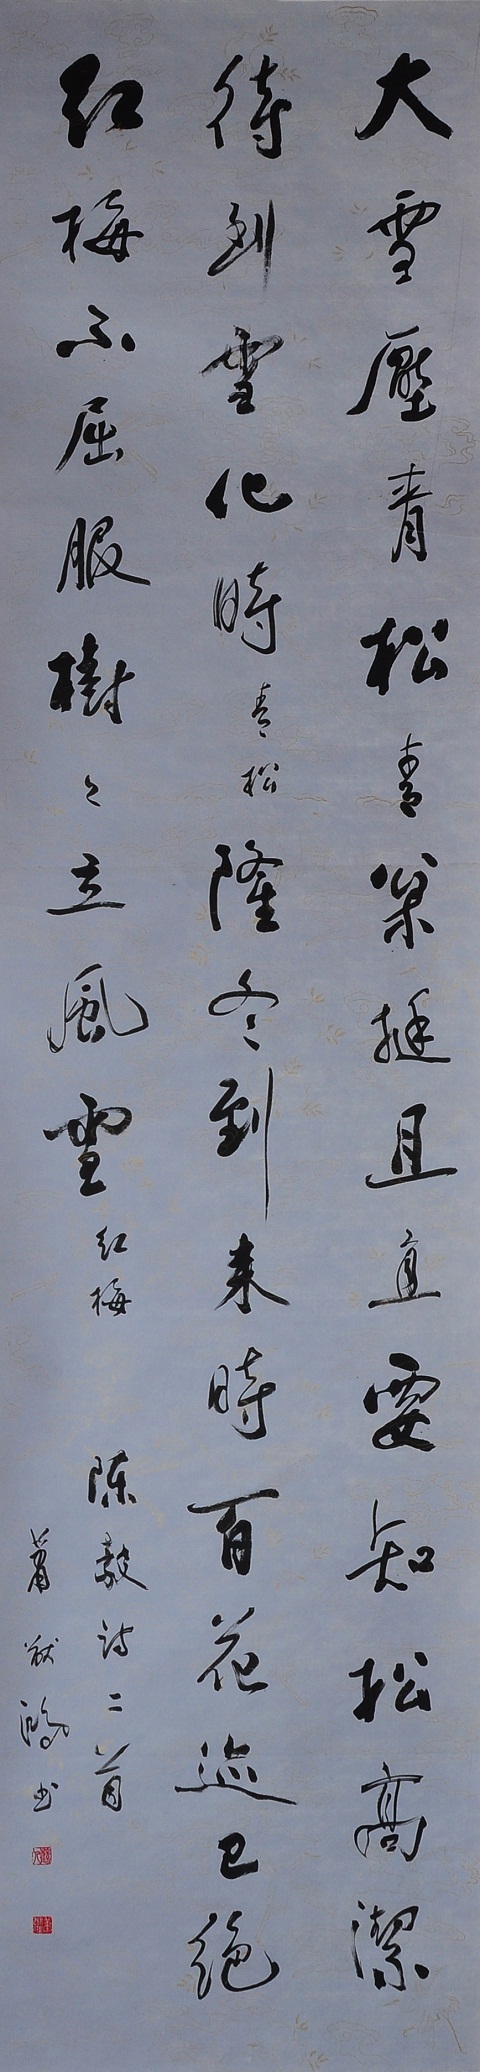 大雪壓青松青松挺且直要知松高潔
待到雪化時青松隆冬到來時百花迹已絕
紅梅不屈服樹々立風雪紅梅
陳毅詩二首
蕭鴻书